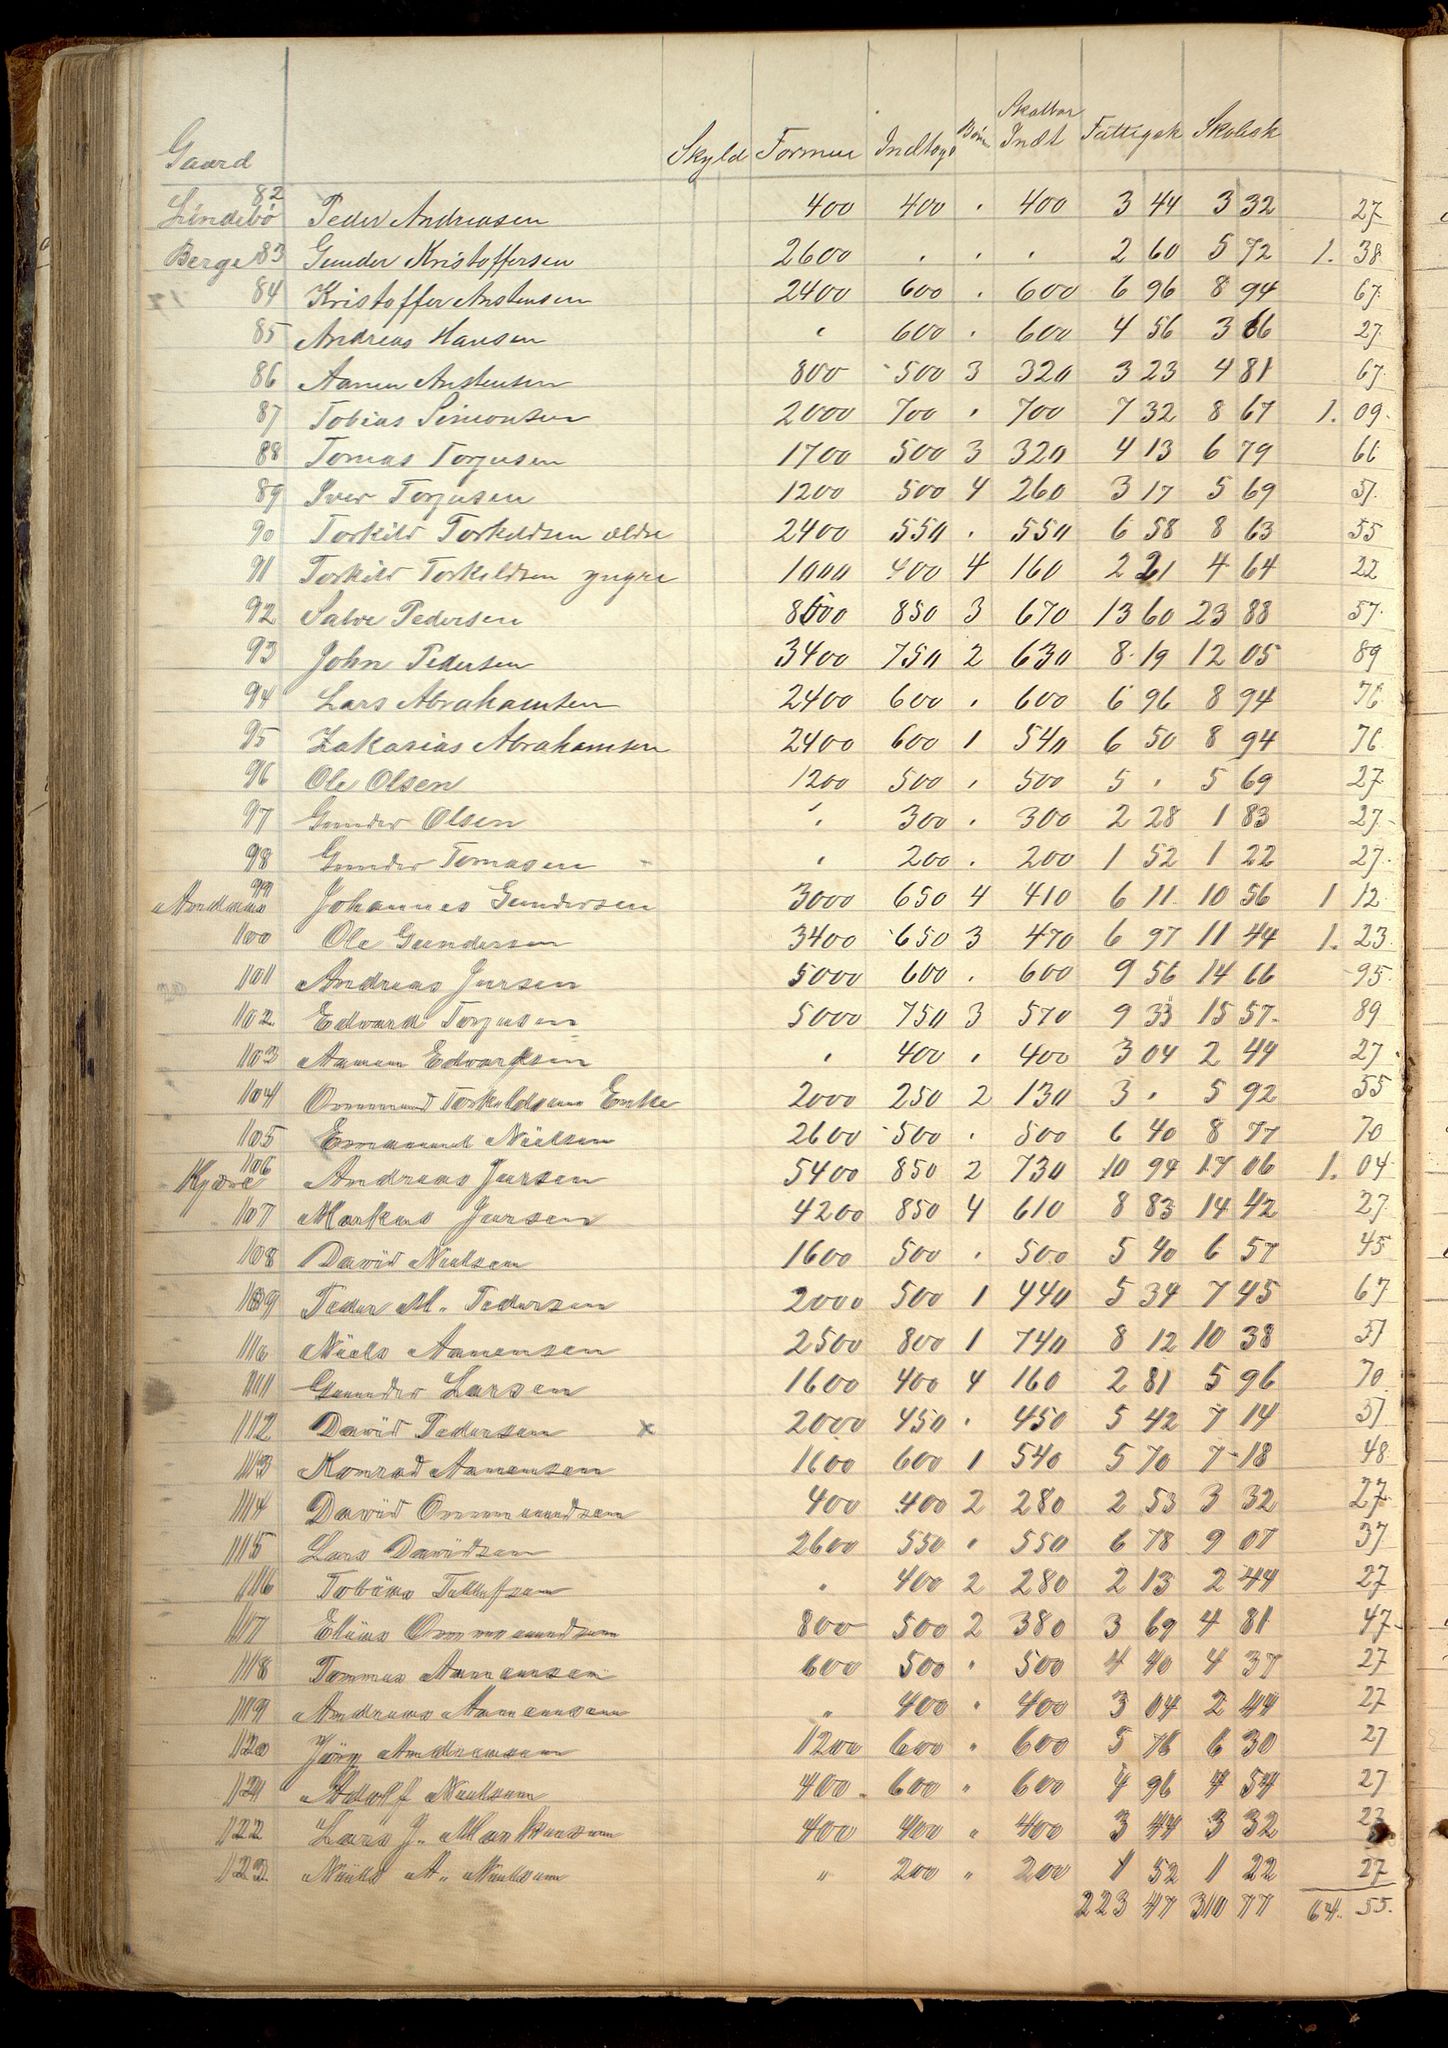 Gaard Skyld Formue Indtægt Børn Skatbar Indt Fattigsk Skolesk
Lindebö 82 Peder Andreasen 400 400 . 400 3 44 3 32 27
Berge 83 Gunder Kristoffersen 2600 . . . 2 60 5 72 1. 38
84 Kristoffer Anstensen 2400 600 . 600 6 96 8 94 67
85 Andreas Hansen . 600 . 600 4 56 3 66 27
86 Aanen Anstensen 800 500 3 320 3 23 4 81 67
87 Tobias Simonsen 2000 700 . 700 7 32 8 67 1. 09
88 Tomas Torjusen 1700 500 3 320 4 13 6 79 66
89 Iver Torjusen 1200 500 4 260 3 17 5 69 51
90 Torkild Torkildsen ældre 2400 550 . 550 6 58 8 63 55
91 Torkild Torkildsen yngre 1000 400 4 160 2 21 4 64 22
92 Salve Pedersen 8600 850 3 670 13 60 23 88 57
93 John Pedersen 3400 750 2 630 8 19 12 05 89
94 Lars Abrahamsen 2400 600 . 600 6 96 8 94 76
95 Zakasias Abrahamsen 2400 600 1 540 6 50 8 94 76
96 Ole Olsen 1200 500 . 500 5 . 5 69 27
97 Gunder Olsen . 300 . 300 2 28 1 83 27
98 Gunder Tomasen . 200 . 200 1 52 1 22 27
99 Johannes Gundersen 3000 650 4 410 6 11 10 56 1 12
100 Ole Gundersen 3400 650 3 470 6 97 11 44 1. 23
101 Andreas Jursen 5000 600 . 600 9 56 14 66 95
102 Edvard Torjusen 5000 750 3 570 9 33 15 57 89
103 Aanen Edvardsen . 400 . 400 3 04 2 44 27
104 Ommund Torkildsens Enke 2000 250 2 130 3 . 5 92 55
105 Emanuel Nielsen 2600 500 . 500 6 40 8 77 70
Kjære 106 Andreas Jursen 5400 850 2 730 10 94 17 06 1. 04
107 Markus Jursen 4200 850 4 610 8 83 14 42 27
108 David Nielsen 1600 500 . 500 5 40 6 57 45
109 Peder M. Pedersen 2000 500 1 440 5 34 7 45 67
110 Niels Aanensen 2500 800 1 740 8 12 10 38 51
111 Gunder Larsen 1600 400 4 160 2 81 5 96 70
112 David Pedersen x 2000 450 . 450 5 42 7 14 51
113 Konrad Aanensen 1600 600 1 540 5 70 7 18 48
114 David Ommundsen 400 400 2 280 2 53 3 32 27
115 Lars Davidsen 2600 550 " 550 6 78 9 07 37
116 Tobias Tellefsen " 400 2 280 2 13 2 44 27
117 Elias Ommundsen 800 500 2 380 3 69 4 81 47
118 Tommas Aanensen 600 500 " 500 4 40 4 37 27
119 Andreas Aanensen " 400 " 400 3 04 2 44 27
120 Jörg Andreasen 1200 600 " 600 5 76 6 30 27
121 Adolf Nielsen 400 600 " 600 4 96 4 54 27
122 Lars J. Markussen 400 400 " 400 3 44 3 32 27
123 Niels A. Nielsen " 200 " 200 1 52 1 22 27
223 47 310 77 64. 55.